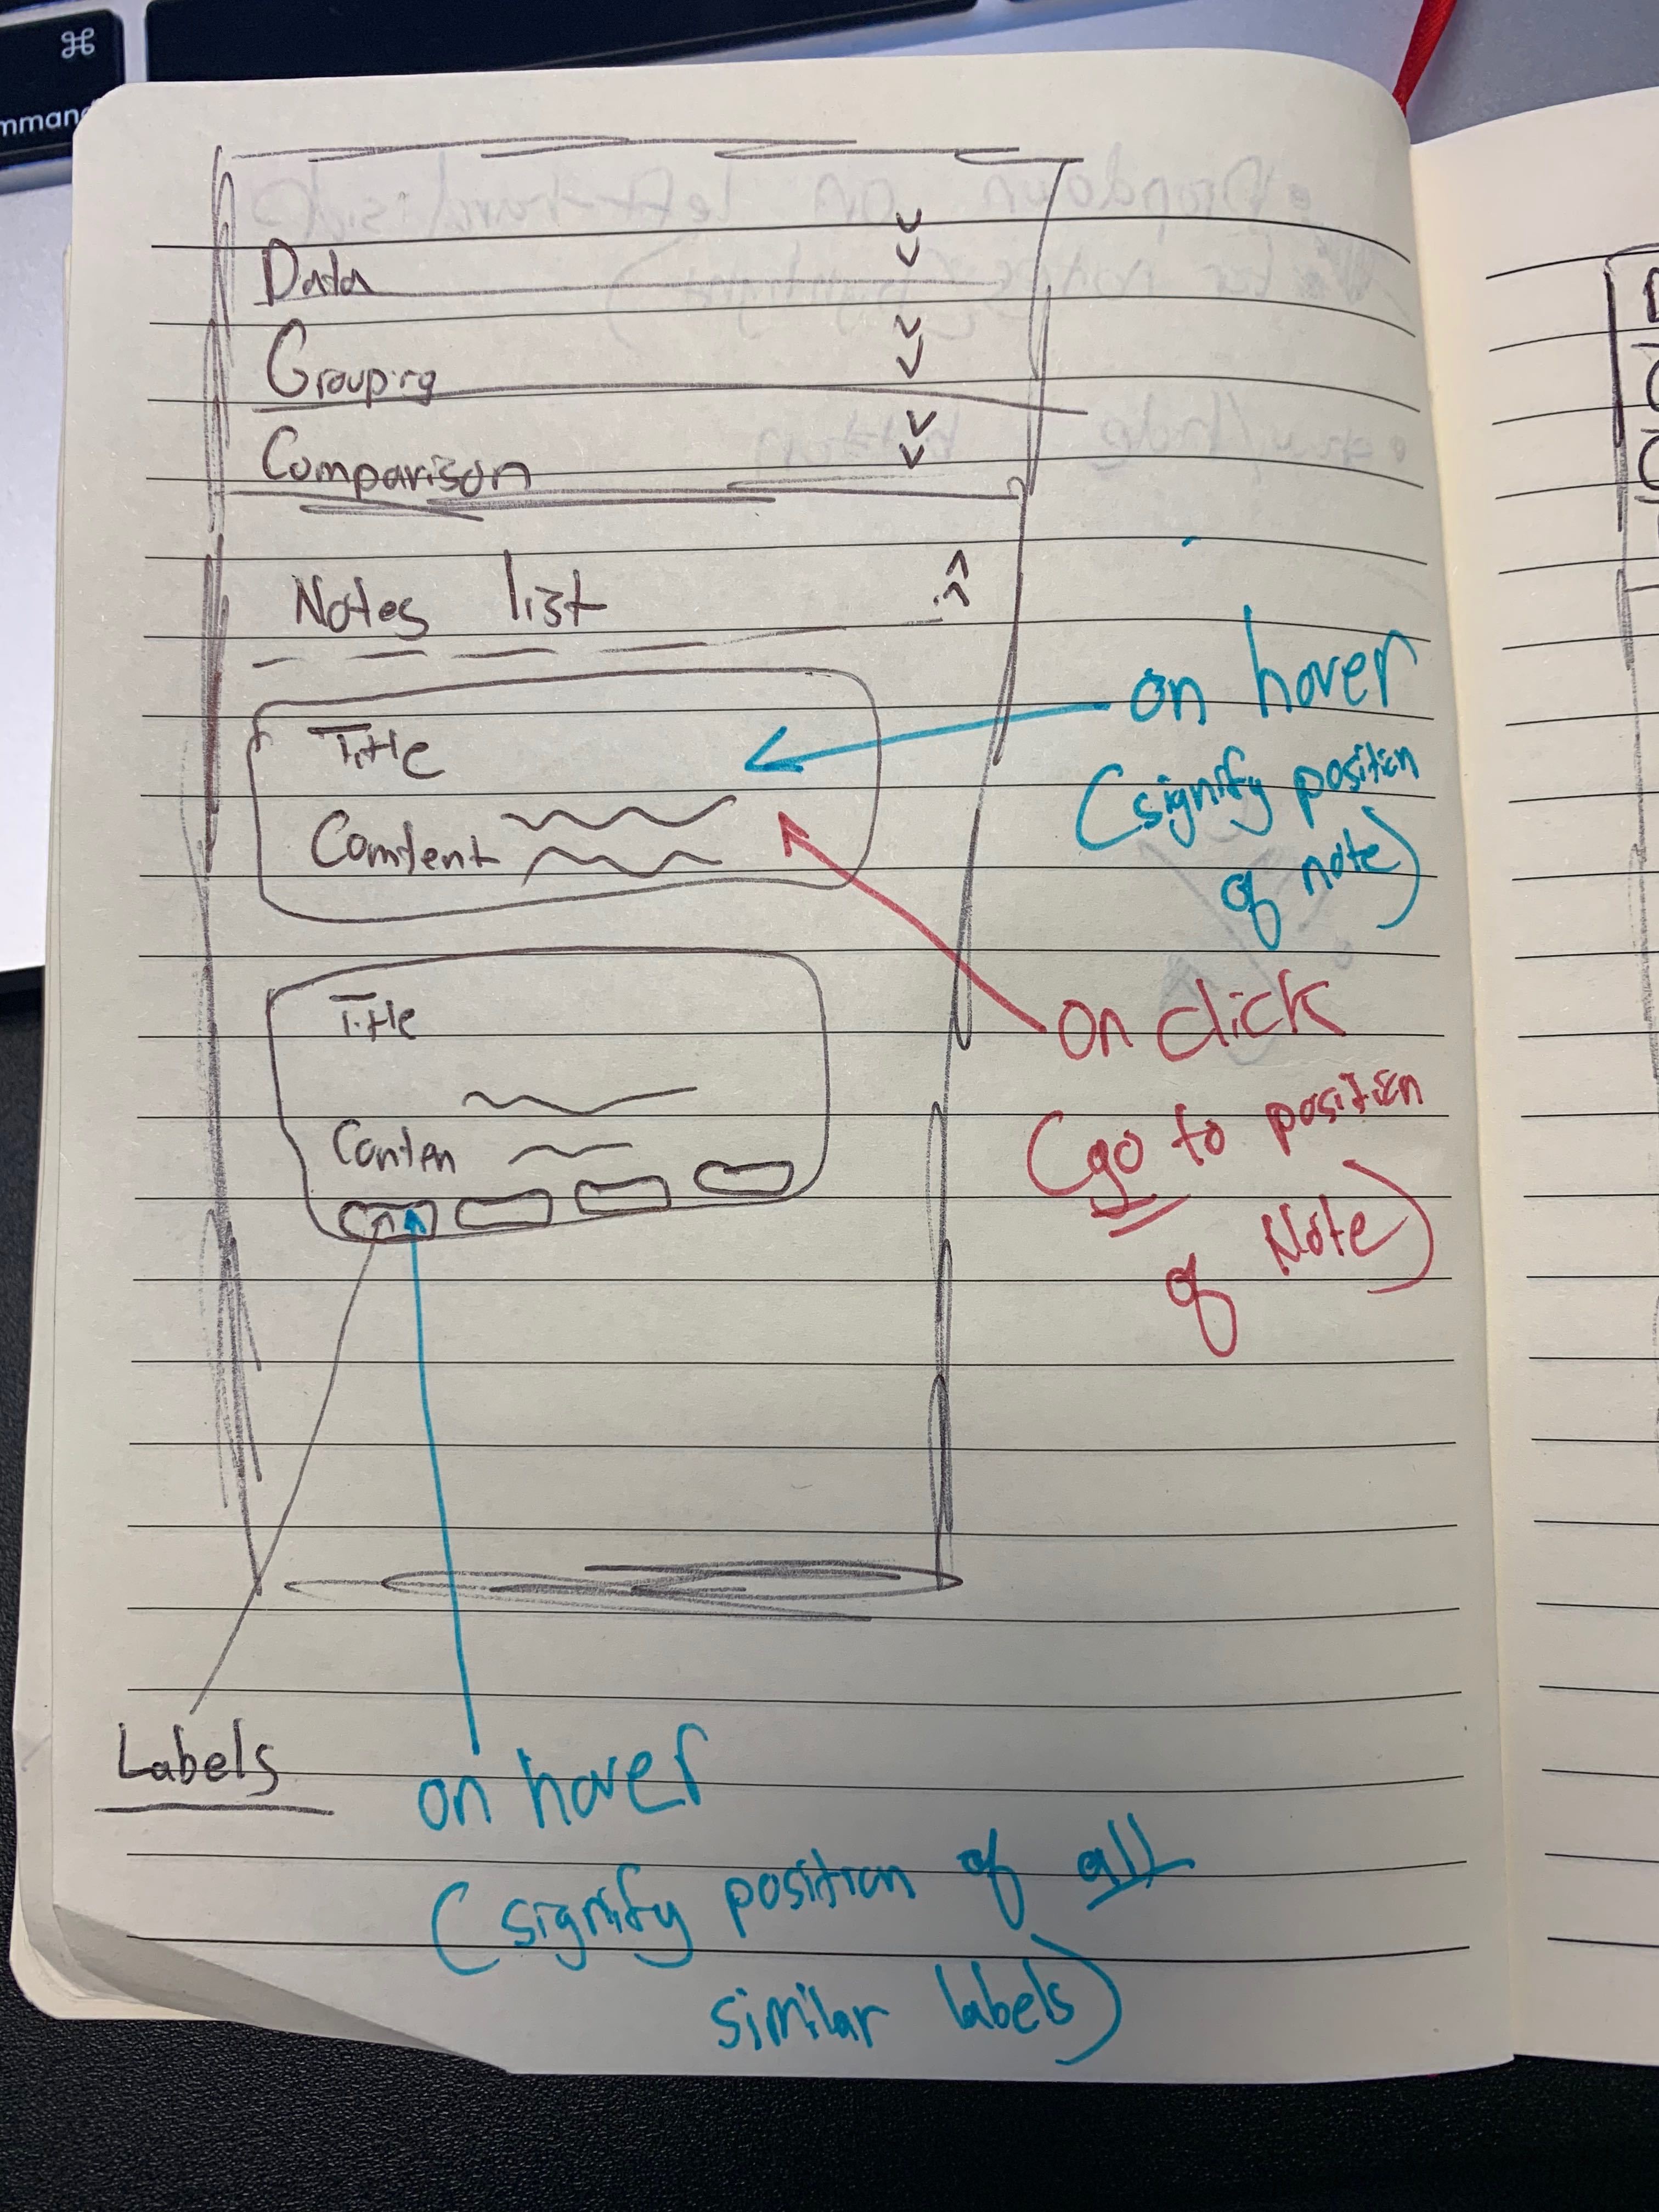 ⌘
command
Data
Grouping
Comparison
Notes list
Title
Comtent
on hover
(signify position
of note)
on click
(go to position
of Note)
Title
Conten
Labels
on hover
(signify position of all
similar labels)